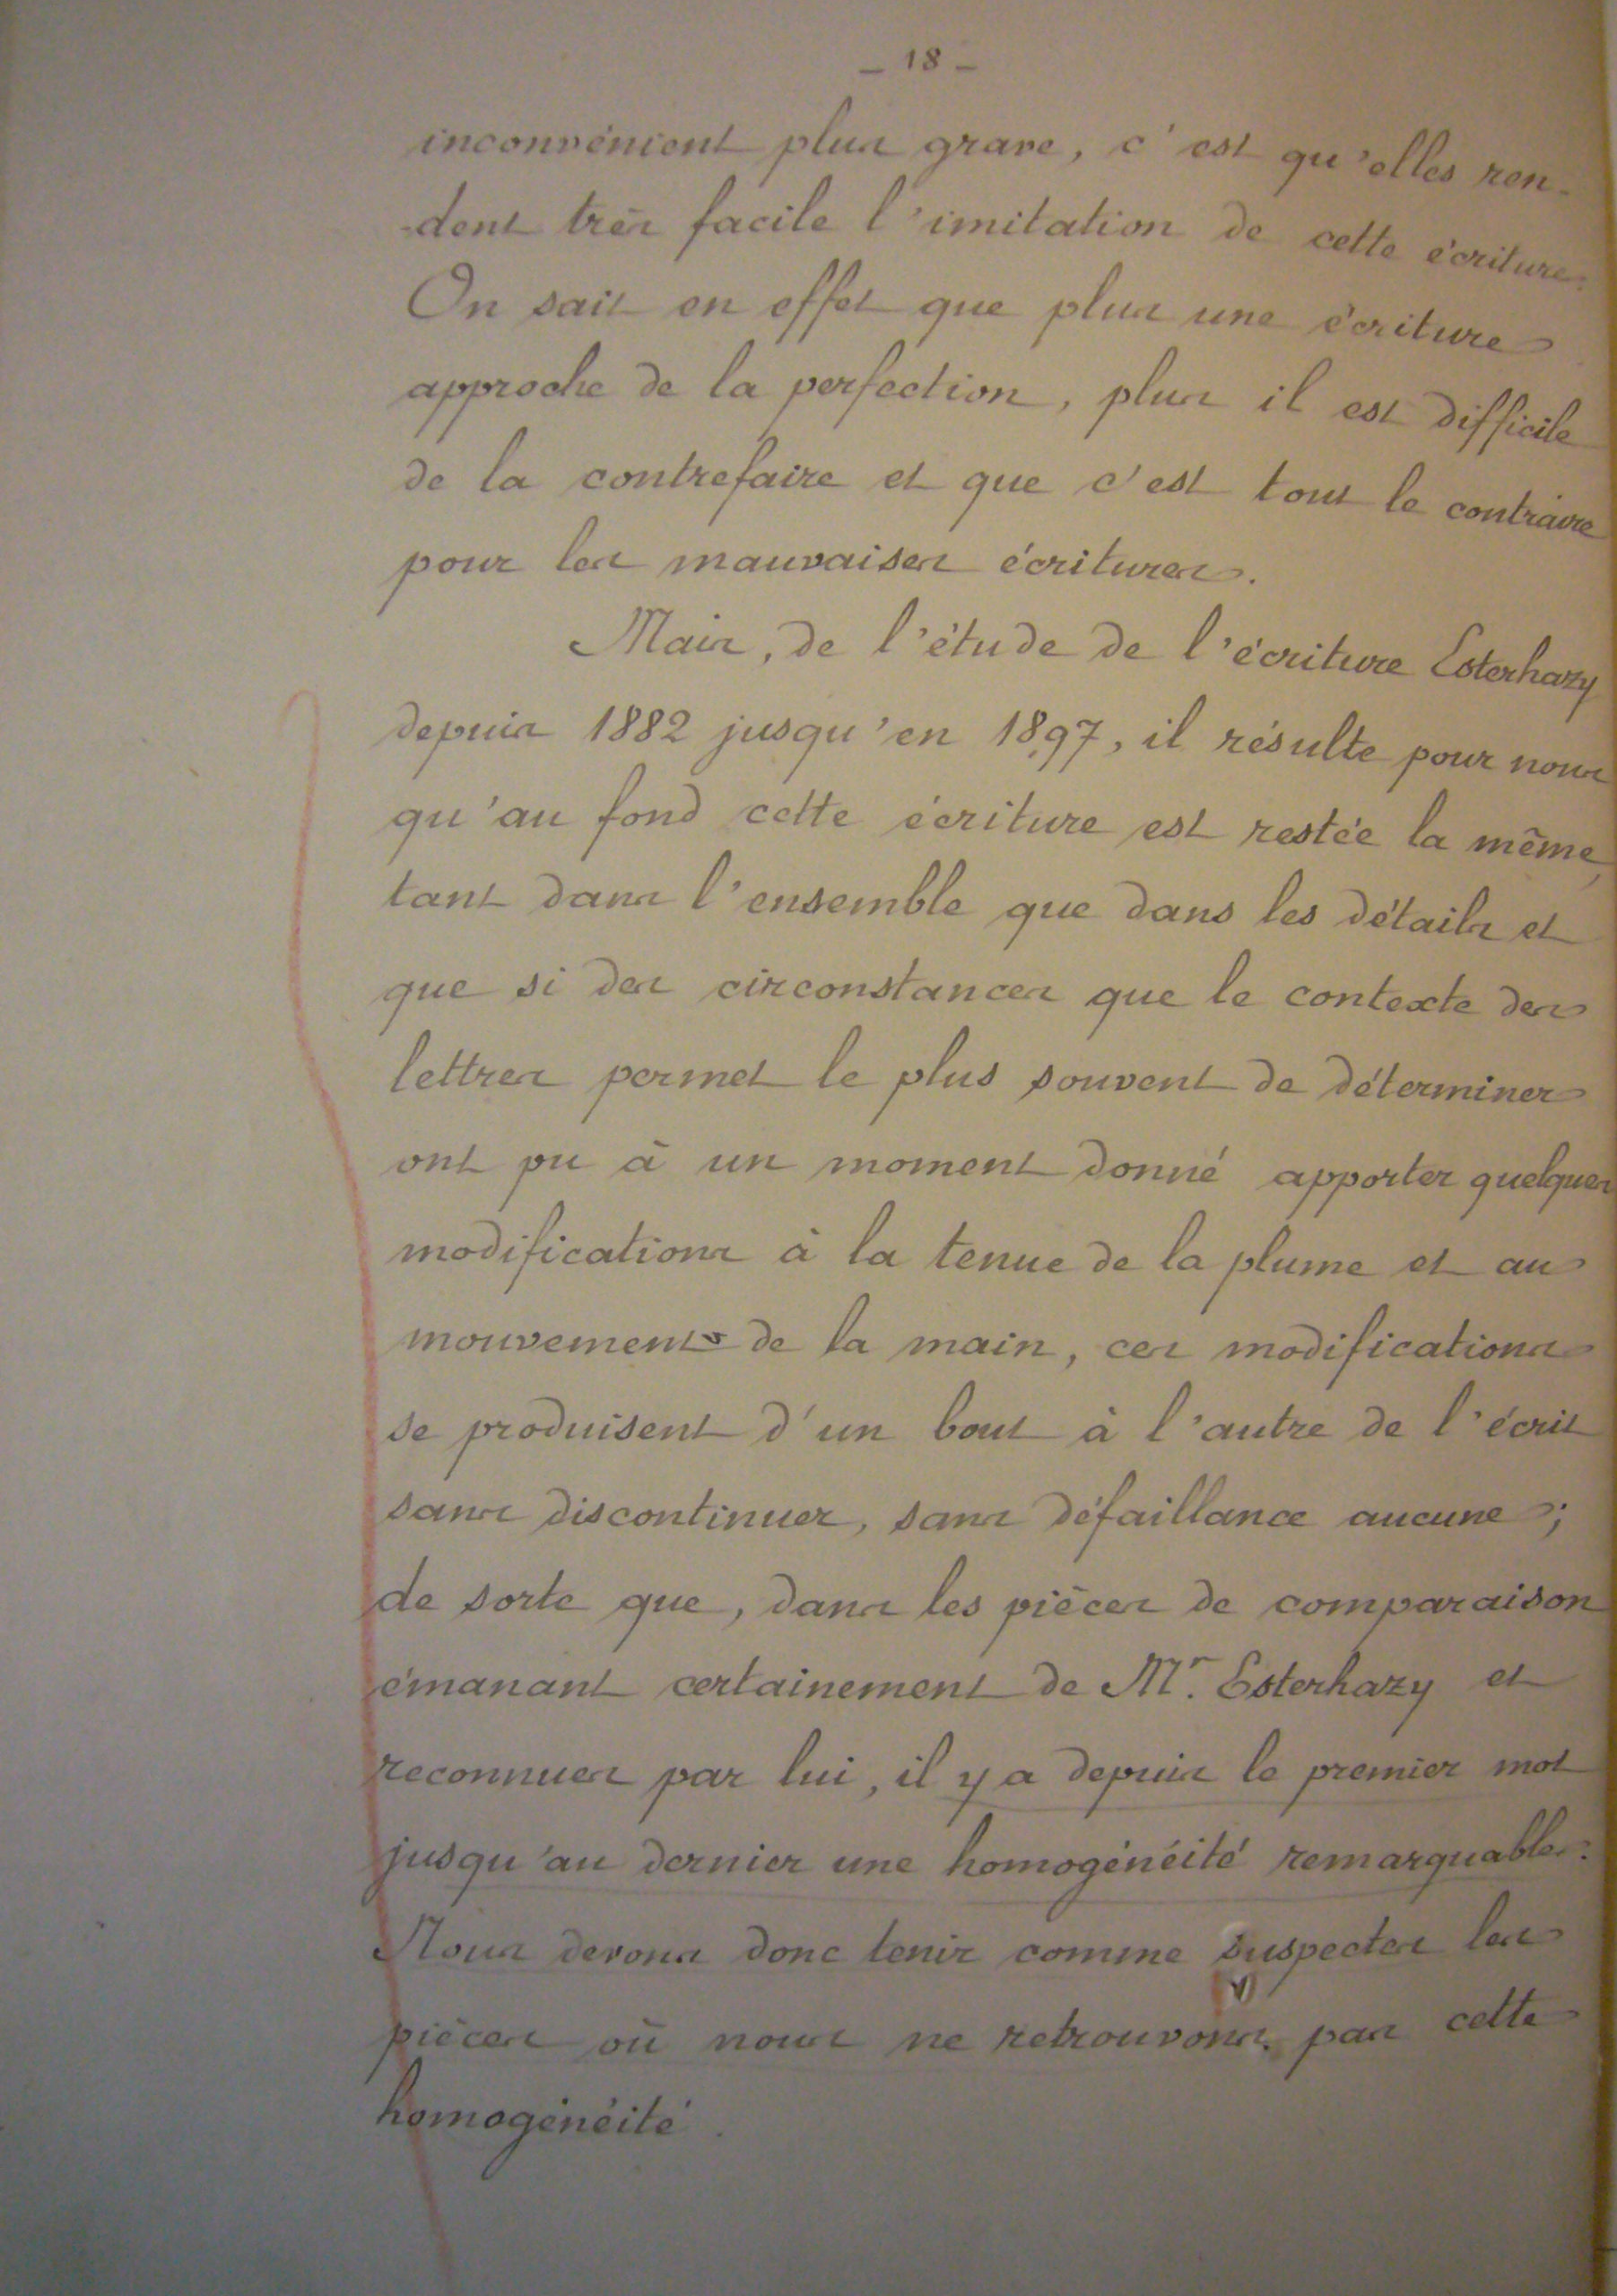 _ 18 _
inconvénient plus grave, c'est qu'elles ren-
-dent très facile l'imitation de cette écriture.
On sait en effet que plus une écriture
approche de la perfection, plus il est difficile
de la contrefaire et que c'est tout le contraire
pour les mauvaises écritures.
Mais, de l'étude de l'écriture Esterhazy
depuis 1882 jusqu'en 1897, il résulte pour nous
qu'au fond cette écriture est restée la même,
tant dans l'ensemble que dans les détails et
que si des circonstances que le contexte des
lettres permet le plus souvent de déterminer
ont pu à un moment donné apporter quelques
modifications à la tenue de la plume et au
mouvements de la main, ces modifications
se produisent d'un bout à l'autre de l'écrit
sans discontinuer, sans défaillance aucune ;
de sorte que, dans les pièces de comparaison
émanant certainement de Mr. Esterhazy et
reconnues par lui, il y a depuis le premier mot
jusqu'au dernier une homogénéité remarquable.
Nous devons donc tenir comme suspectes les
pièces où nous ne retrouvons pas cette
homogénéité.